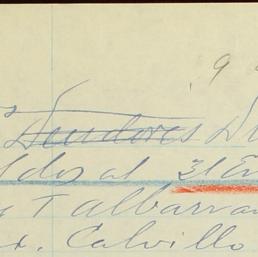 9
Deudores D
ldos al 31 En
y Talbarran
x. Calvillo